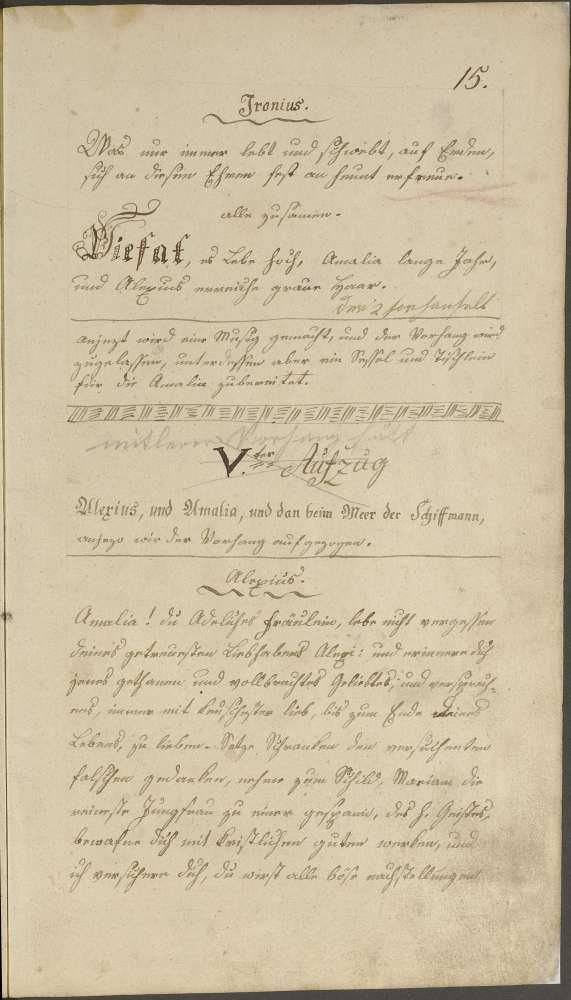 15.
Ironius.
Was nur immer lebt und schwebt, auf Erden,
sich an diesem Ehren fest an heunt erfreue.
alle zusamen.
Viefat, es Lebe hoch, Amalia lange Jahr,
und Alexius erreiche graue Haar.
Der 2
anjezt wird eine Musig gemacht, und der Vorhang wird
zugelassen, unterdessen aber ein Sessel und Tischlein
für die Amalia zubereitet.
mitlerer Vorhang
V.ter Aufzug
Alexius, und Amalia, und dan beim Meer der Schiffmann,
anjezo wir der Vorhang aufgezogen.
Alexius.
Amalia! du Adeliches Fräulein, lebe nicht vergessen
deines getreuesten Liebhabers Alexi: und erinnere dich
jenes gethanen und vollbrachtes Geliebtes, und versprech-
ens, immer mit keuschester lieb, bis zum Ende deines
Lebens, zu lieben. Setze Schranken den versuchenten
falschen gedanken, nehme zum Schild, Mariam die
reineste Jungfrau zu einer gespanin, des h. Geistes,
bewafne dich mit kristlichen guten werken, und
ich versichere dich, du wirst alle böse nachstellungen